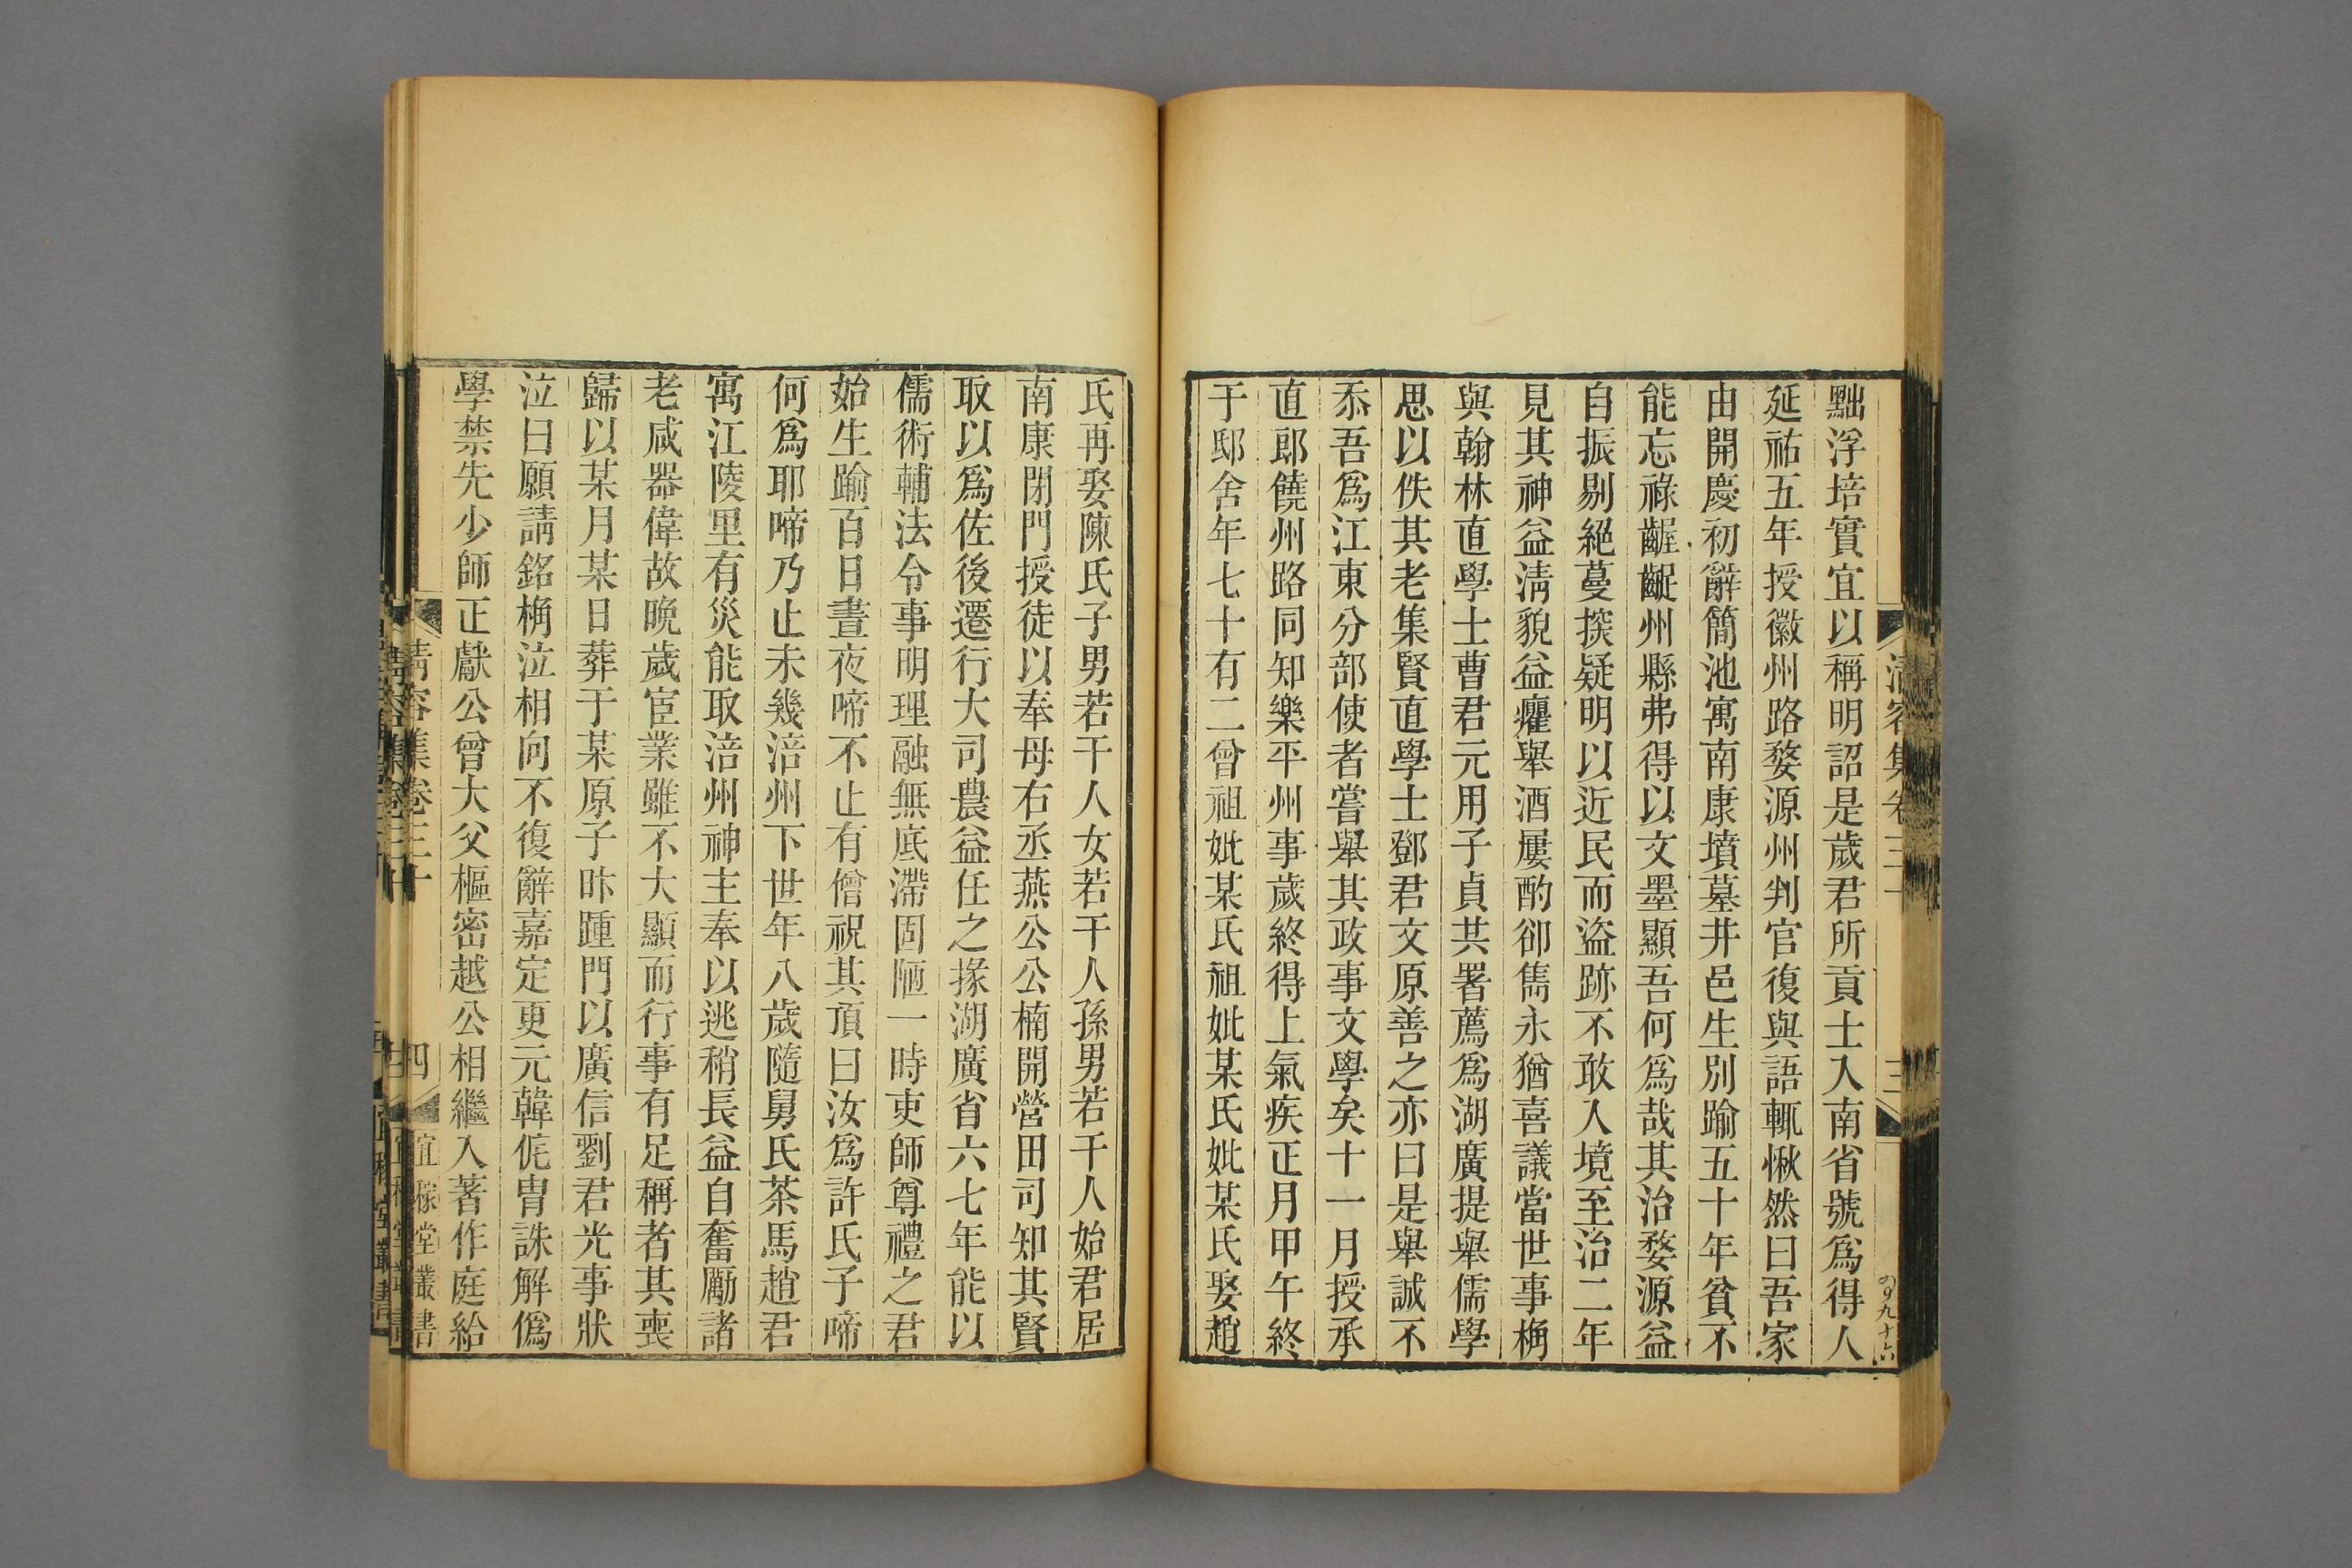 清容集卷三十
三
黜浮培實宜以稱明詔是歲君所貢士入南省號爲得人
延祐五年授徽州路婺源州判官復與語輒愀然曰吾家
由開慶初辭簡池寓南康墳墓井邑生別踰五十年貧不
能忘祿齷齪州縣弗得以文墨顯吾何爲哉其治婺源益
自振剔絕蔓探疑明以近民而盜跡不敢入境至治二年
見其神益淸貌益癯舉酒屢酌卻雋永猶喜議當世事桷
與翰林直學士曹君元用子貞共署薦爲湖廣提舉儒學
思以佚其老集賢直學士鄧君文原善之亦曰是舉誠不
忝吾爲江東分部使者嘗舉其政事文學矣十一月授承
直郎饒州路同知樂平州事歲終得上氣疾正月甲午終
于邸舍年七十有二曾祖妣某氏祖妣某氏妣某氏娶趙
氏再娶陳氏子男若干人女若干人孫男若干人始君居
南康閉門授徒以奉母右丞燕公公楠開營田司知其賢
取以爲佐後遷行大司農益任之掾湖廣省六七年能以
儒術輔法令事明理融無底滯固陋一時吏師尊禮之君
始生踰百日晝夜啼不止有僧祝其頂曰汝爲許氏子啼
何爲耶啼乃止未幾涪州下世年八歲隨舅氏茶馬趙君
寓江陵里有災能取涪州神主奉以逃稍長益自奮勵諸
老咸器偉故晚歲宦業雖不大顯而行事有足稱者其喪
歸以某月某日葬于某原子昨踵門以廣信劉君光事狀
泣曰願請銘桷泣相向不復辭嘉定更元韓侂冑誅解僞
學禁先少師正獻公曾大父樞密越公相繼入著作庭給
清容集卷三十
四
宜稼堂叢書